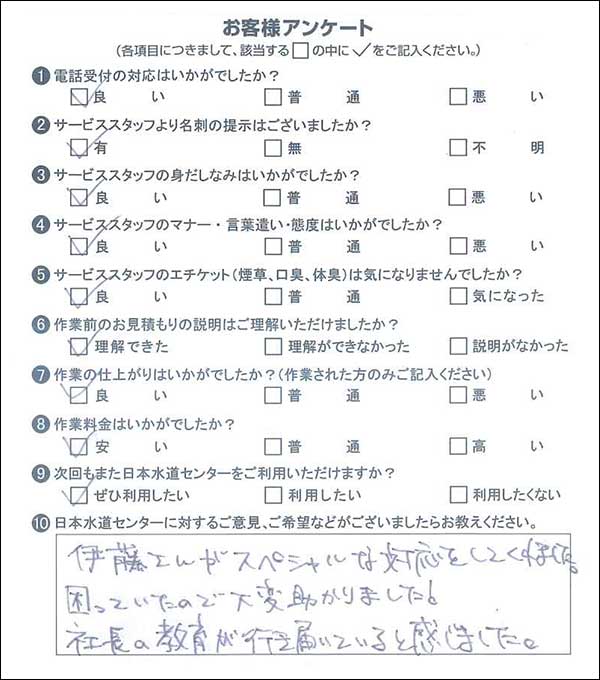 お客様アンケート
(各項目につきまして、該当する□の中に✓をご記入ください。)
❶電話受付の対応はいかがでしたか?
☑良い □普通 □悪い
❷サービススタッフより名刺の提示はございましたか?
☑有 □無 □不明
❸サービススタッフの身だしなみはいかがでしたか?
☑良い □普通 □悪い
❹サービススタッフのマナー・言葉遣い・態度はいかがでしたか?
☑良い □普通 □悪い
❺サービススタッフのエチケット(煙草、口臭、体臭)は気になりませんでしたか?
☑良い □普通 □気になった
❻作業前のお見積もりの説明はご理解いただけましたか?
☑理解できた □理解ができなかった □説明がなかった
❼作業の仕上がりはいかがでしたか?(作業された方のみご記入ください)
☑良い □普通 □悪い
❽作業料金はいかがでしたか?
☑安い □普通 □高い
❾次回もまた日本水道センターをご利用いただけますか?
☑ぜひ利用したい □利用したい □利用したくない
❿日本水道センターに対するご意見、ご希望などがございましたらお教えください。
伊藤さんがスペシャルな対応をしてくれました。
困っていたので大変助かりました!
社長の教育が行き届いていると感じました。